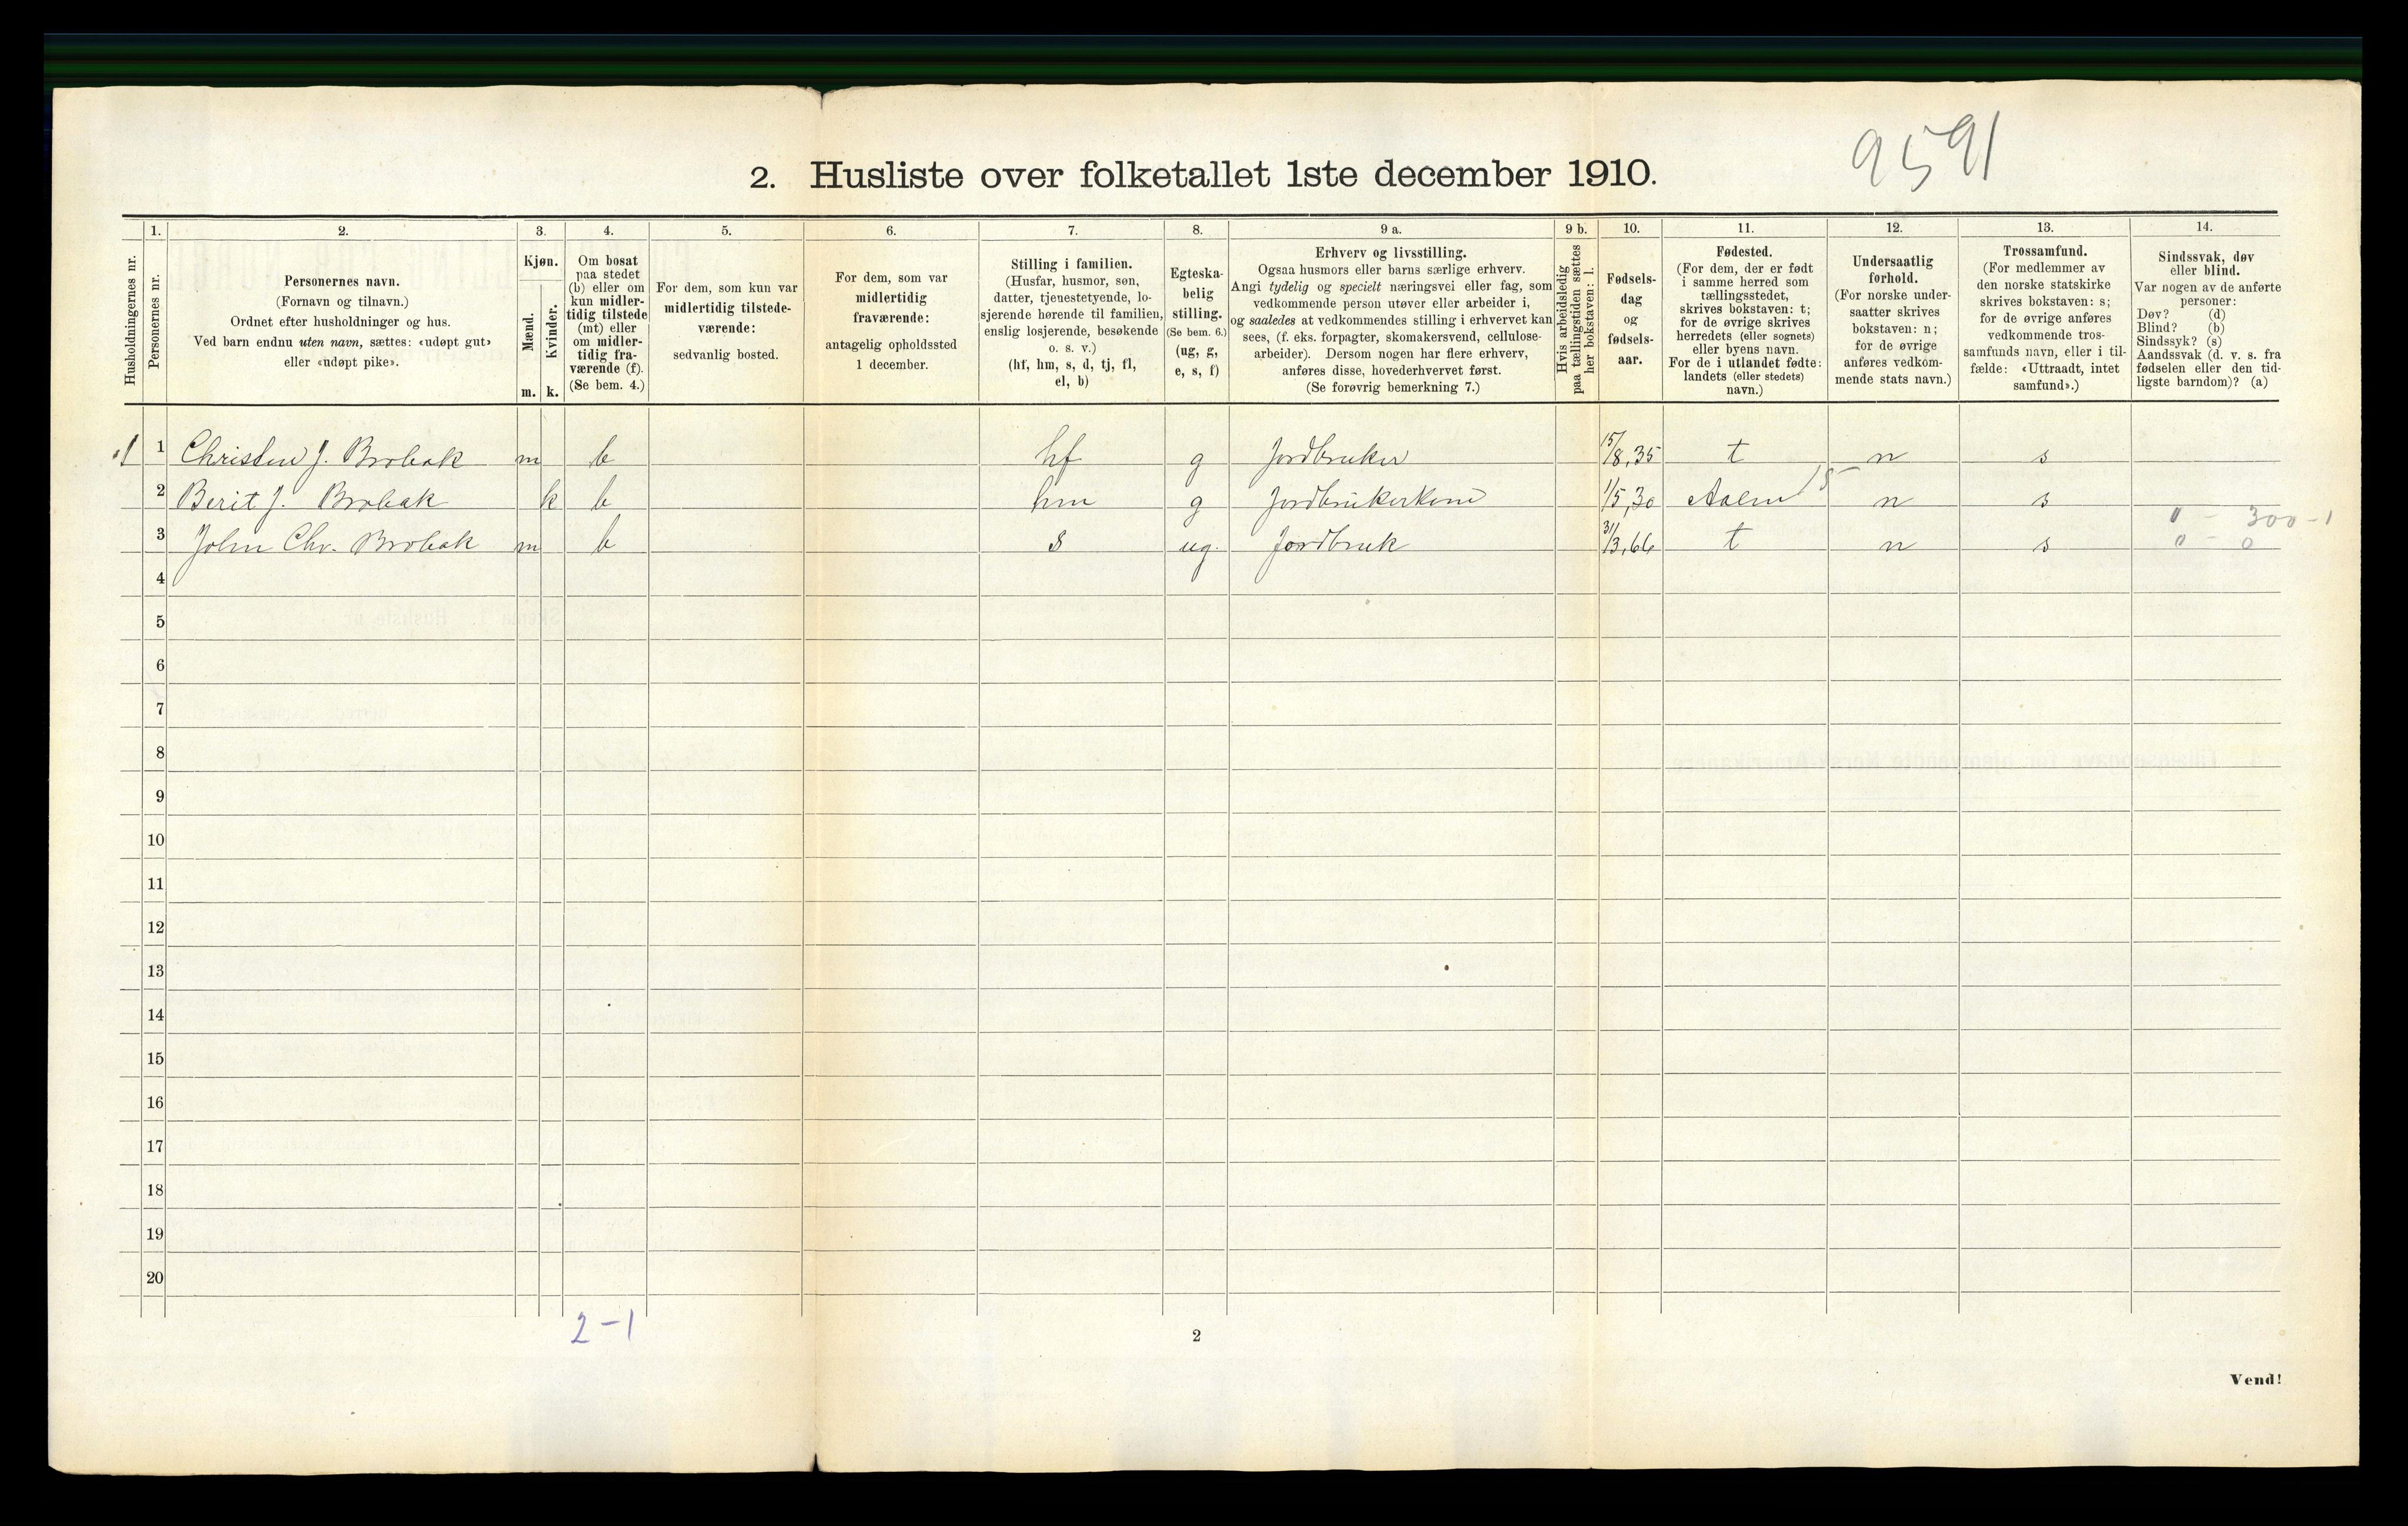 9591
2. Husliste over folketallet 1ste december 1910.
Husholdningernes nr.
1.
Personernes nr.
2.
Personernes navn.
(Fornavn og tilnavn.)
Ordnet efter husholdninger og hus.
Ved barn endnu uten navn, sættes: «udøpt gut»
eller «udøpt pike».
3.
Kjøn.
Mænd.
Kvinder.
m. k.
4.
Om bosat
paa stedet
(b) eller om
kun midler-
tidig tilstede
(mt) eller
om midler-
tidig fra-
værende (f).
(Se bem. 4.)
5.
For dem, som kun var
midlertidig tilstede-
værende:
sedvanlig bosted.
6.
For dem, som var
midlertidig
fraværende:
antagelig opholdssted
1 december.
7.
Stilling i familien.
(Husfar, husmor, søn,
datter, tjenestetyende, lo-
sjerende hørende til familien,
enslig losjerende, besøkende
o. s. v.)
(hf, hm, s, d, tj, fl,
el, b)
8.
Egteska-
belig
stilling.
(Se bem. 6.)
(ug, g,
e, s, f)
9 a.
Erhverv og livsstilling.
Ogsaa husmors eller barns særlige erhverv.
Angi tydelig og specielt næringsvei eller fag, som
vedkommende person utøver eller arbeider i,
og saaledes at vedkommendes stilling i erhvervet kan
sees, (f. eks. forpagter, skomakersvend, cellulose-
arbeider). Dersom nogen har flere erhverv,
anføres disse, hovederhvervet først.
(Se forøvrig bemerkning 7.)
9 b.
Hvis arbeidsledig
paa tællingstiden sættes
her bokstaven: l.
10.
Fødsels-
dag
og
fødsels-
aar.
11.
Fødested.
(For dem, der er født
i samme herred som
tællingsstedet,
skrives bokstaven: t;
for de øvrige skrives
herredets (eller sognets)
eller byens navn.
For de i utlandet fødte:
landets (eller stedets)
navn.)
12.
Undersaatlig
forhold.
(For norske under-
saatter skrives
bokstaven: n;
for de øvrige
anføres vedkom-
mende stats navn.)
13.
Trossamfund.
(For medlemmer av
den norske statskirke
skrives bokstaven: s;
for de øvrige anføres
vedkommende tros-
samfunds navn, eller i til-
fælde: «Uttraadt, intet
samfund».)
14.
Sindssvak, døv
eller blind.
Var nogen av de anførte
personer:
Døv? (d)
Blind? (b)
Sindssyk? (s)
Aandssvak (d. v. s. fra
fødselen eller den tid-
ligste barndom)? (a)
1 1 Christen J. Brobak m b hf g Jordbruker 15/8,35 t n s
2 Berit J. Brobak k b hm g Jordbrukerkone 1/5,30 Aalen 15 n s
0 - 300-1
3 John Chr. Brobak m b s ug. Jordbruk 31/3,66 t n s 0 - 0
4
5
6
7
8
9
10
11
12
13
14
15
16
17
18
19
20
2-1
2
Vend!